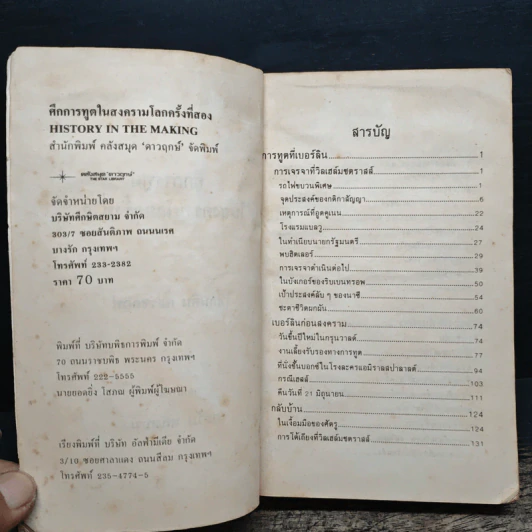 ศึกการทูตในสงครามโลกครั้งที่สอง
HISTORY IN THE MAKING
สำนักพิมพ์ คลังสมุด ‘ดาวฤกษ์’ จัดพิมพ์
คลังสมุด ‘ดาวฤกษ์’
THE STAR LIBRARY
จัดจำหน่ายโดย
บริษัทศึกษิตสยาม จำกัด
303/7 ซอยสันติภาพ ถนนนเรศ
บางรัก กรุงเทพฯ
โทรศัพท์ 233-2382
ราคา 70 บาท
พิมพ์ที่ บริษัทบพิธการพิมพ์ จำกัด
70 ถนนราชบพิธ พระนคร กรุงเทพฯ
โทรศัพท์ 222-5555
นายยอดยิ่ง โสภณ ผู้พิมพ์ผู้โฆษณา
เรียงพิมพ์ที่ บริษัท อัลฟ่ามีเดีย จำกัด
3/10 ซอยศาลาแดง ถนนสีลม กรุงเทพฯ
โทรศัพท์ 235-4774-5
สารบัญ
การทูตที่เบอร์ลิน 1
การเจรจาที่วิลเฮล์มชตราสส์ 1
รถไฟขบวนพิเศษ 1
จุดประสงค์ของกติกาสัญญา 6
เหตุการณ์ที่อูตคูเนน 22
โรงแรมแบลวู 24
ในทำเนียบนายกรัฐมนตรี 27
พบฮิตเลอร์ 29
การเจรจาดำเนินต่อไป 39
ในบังเกอร์ของริบเบนทรอพ 50
เป้าประสงค์ลับ ๆ ของนาซี 54
ชะตาชีวิตมกมัน 60
เบอร์ลินก่อนสงคราม 74
วันขึ้นปีใหม่ในกรุนวาลด์ 74
งานเลี้ยงรับรองทางการทูต 77
ที่นั่งชั้นบอกซ์ในโรงละครแอมิราลสปาลาสต์ 94
กรณีเฮสส์ 103
คืนวันที่ 21 มิถุนายน 111
กลับบ้าน 124
ในเงื้อมมือของศัตรู 124
การโต้เถียงที่วิลเฮล์มชตราสส์ 131